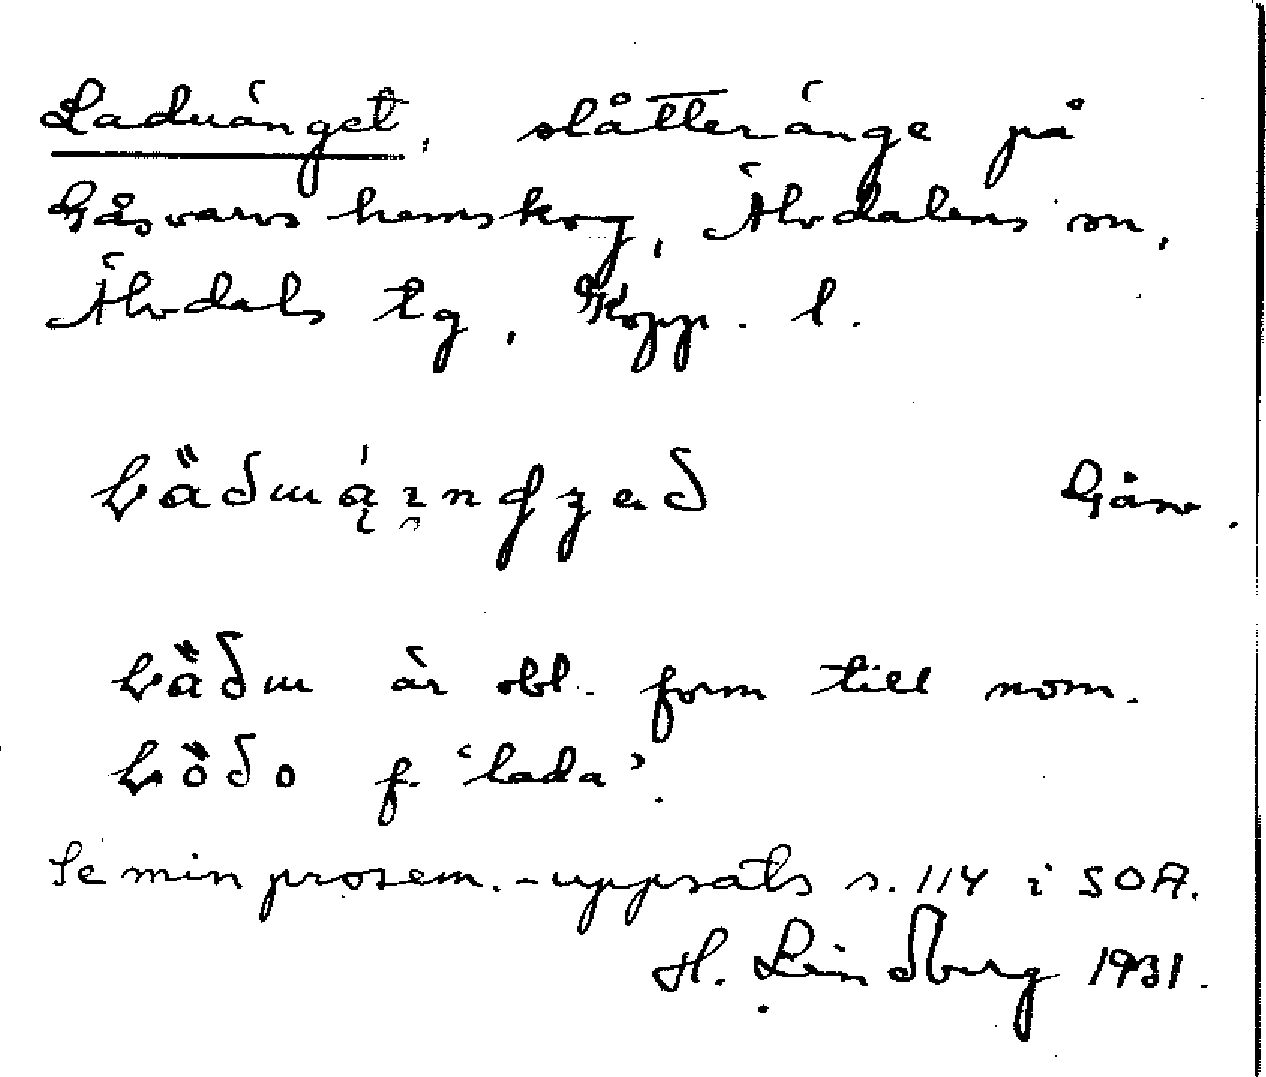 Laduänget, slåtteränge på
Gåsvarvs hemskog, Älvdalens sn,
Älvdals tg, Kopp. l.
Gåsv.
är obl. form till nom.
f. 'lada'.
Se min prosem.-uppsats s. 114 i SOA.
H. Lindberg 1931.